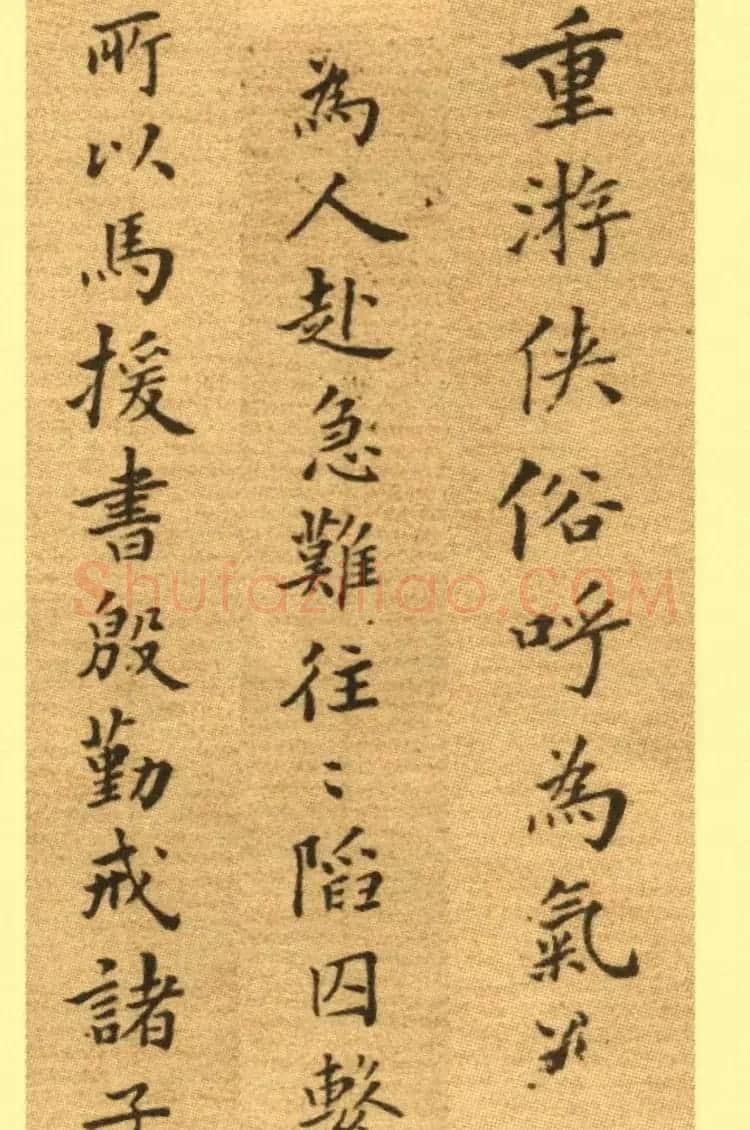 重游侠俗呼為氣義
為人赴急難往〻陷囚繫
所以馬援書殷勤戒諸子
Shufaziliao.COM